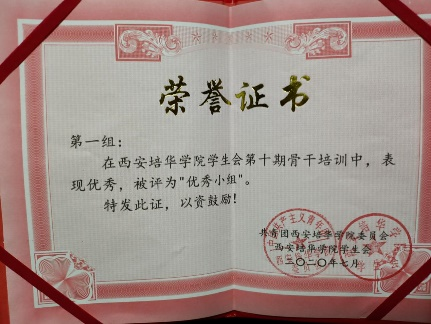 荣誉证书
第一组：
在西安培华学院学生会第十期骨干培训中，表
现优秀，被评为"优秀小组"。
特发此证，以资鼓励！
共青团西安培华学院委员会
西安培华学院学生会
二〇二〇年七月